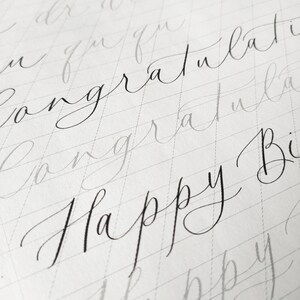 dr dr
qu qu qu
Congratulati
Congratula
Happy Bi
Happy